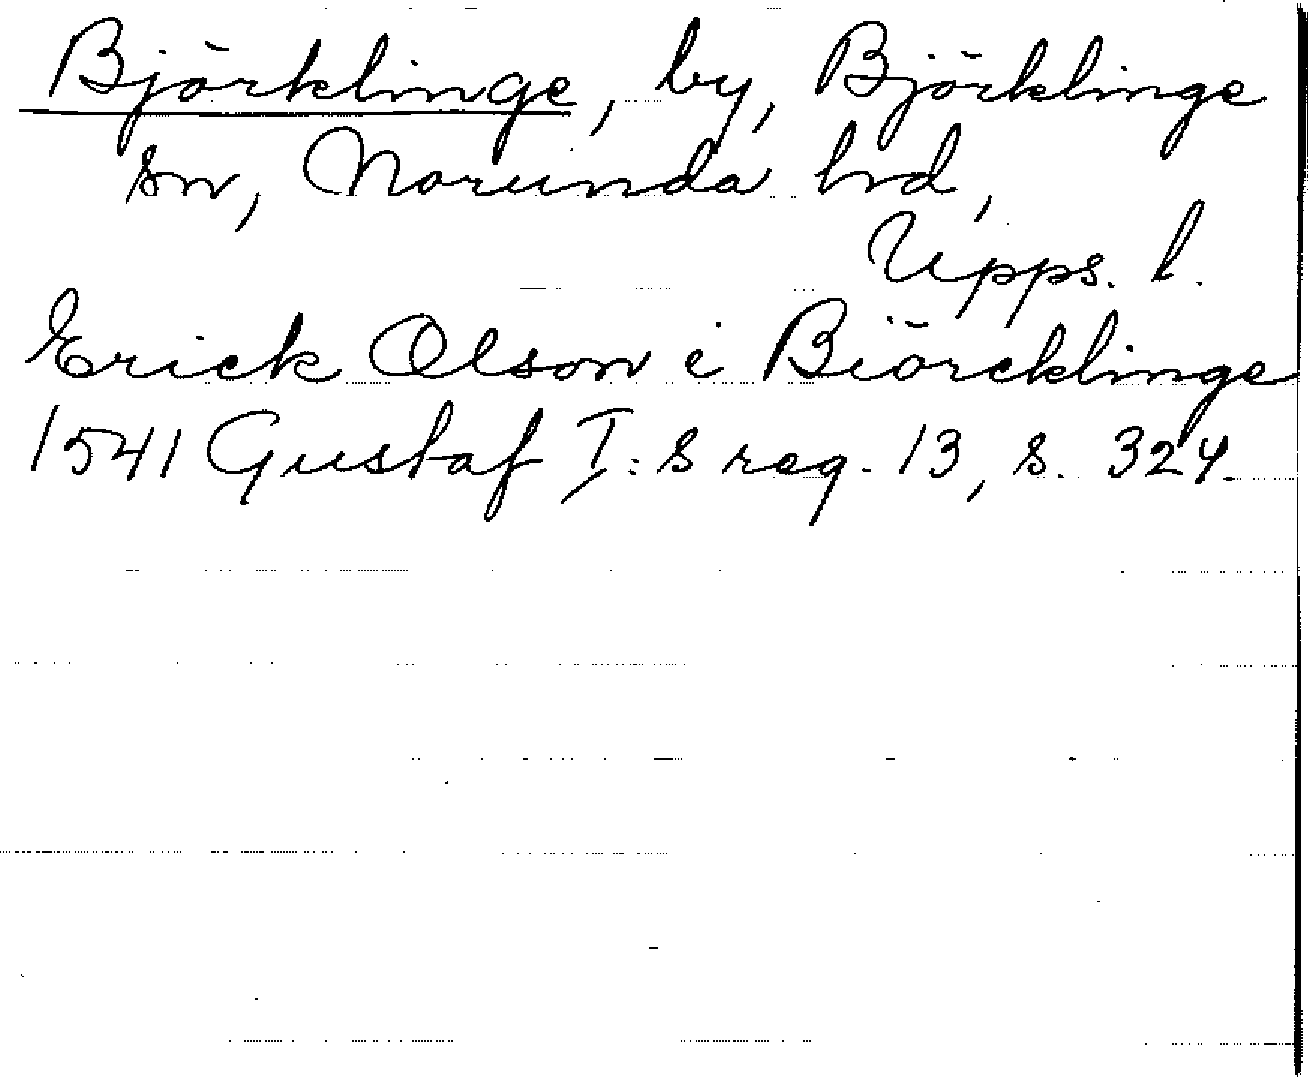 Björklinge, by, Björklinge
sn, Norunda hd,
Upps. l.
Erick Olson i Biörcklinge
1541 Gustaf I:s reg. 13, s. 324.